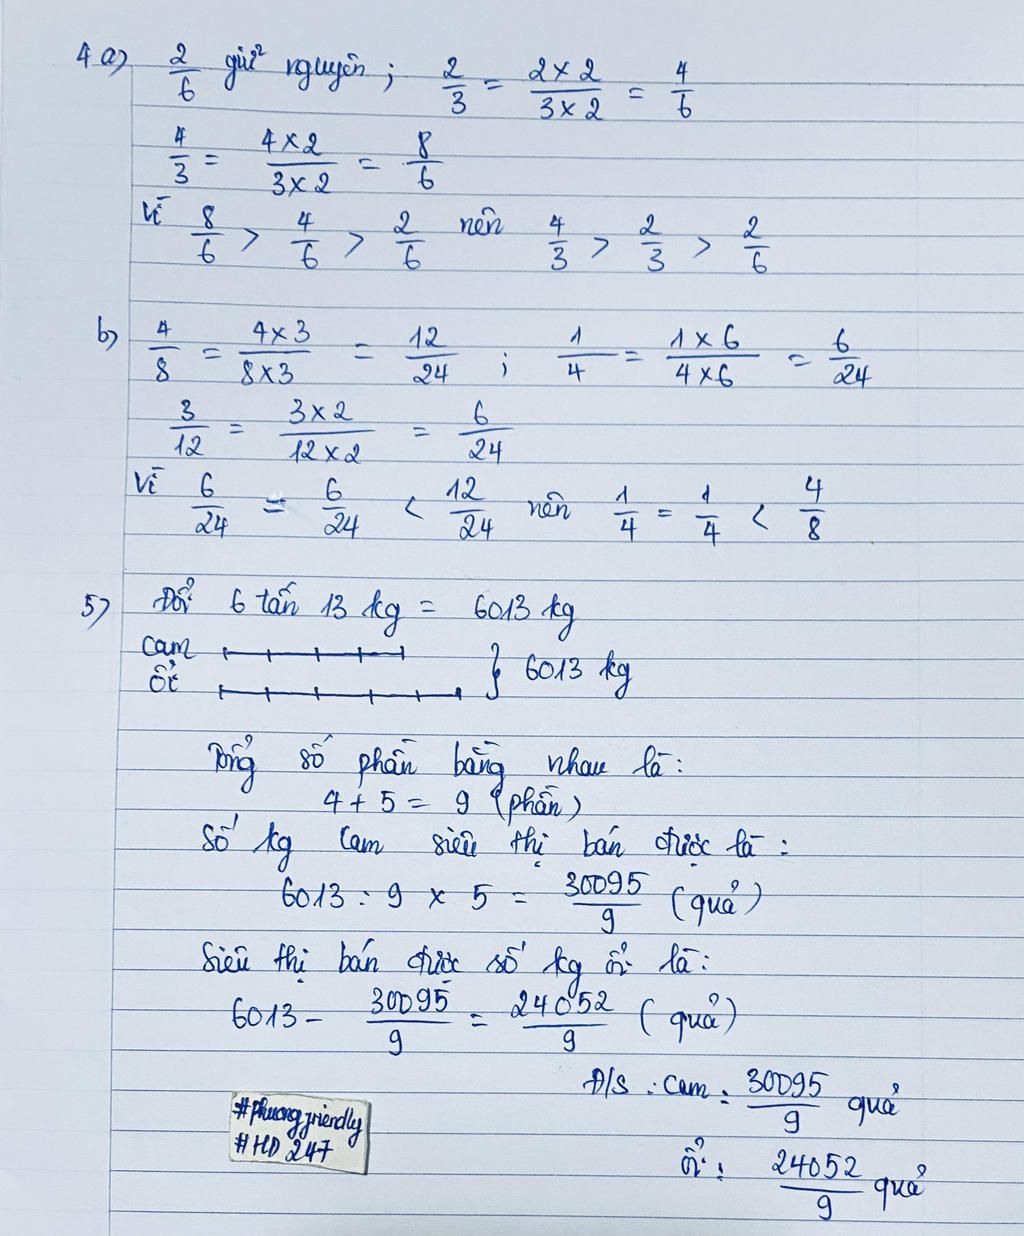 4 a) 2/6 giữ nguyên ; 2/3 = 2 x 2 / 3 x 2 = 4/6
4/3 = 4 x 2 / 3 x 2 = 8/6
Vì 8/6 > 4/6 > 2/6 nên 4/3 > 2/3 > 2/6
b) 4/8 = 4 x 3 / 8 x 3 = 12/24 ; 1/4 = 1 x 6 / 4 x 6 = 6/24
3/12 = 3 x 2 / 12 x 2 = 6/24
Vì 6/24 = 6/24 < 12/24 nên 1/4 = 1/4 < 4/8
5) Đổi 6 tấn 13 kg = 6013 kg
Cam
ổi } 6013 kg
Tổng số phần bằng nhau là :
4 + 5 = 9 (phần)
Số kg cam siêu thị bán được là :
6013 : 9 x 5 = 30095/9 (quả)
Siêu thị bán được số kg ổi là :
6013 - 30095/9 = 24052/9 (quả)
Đ/S : Cam : 30095/9 quả
ổi : 24052/9 quả
#Phuongfriendly
#HD 247